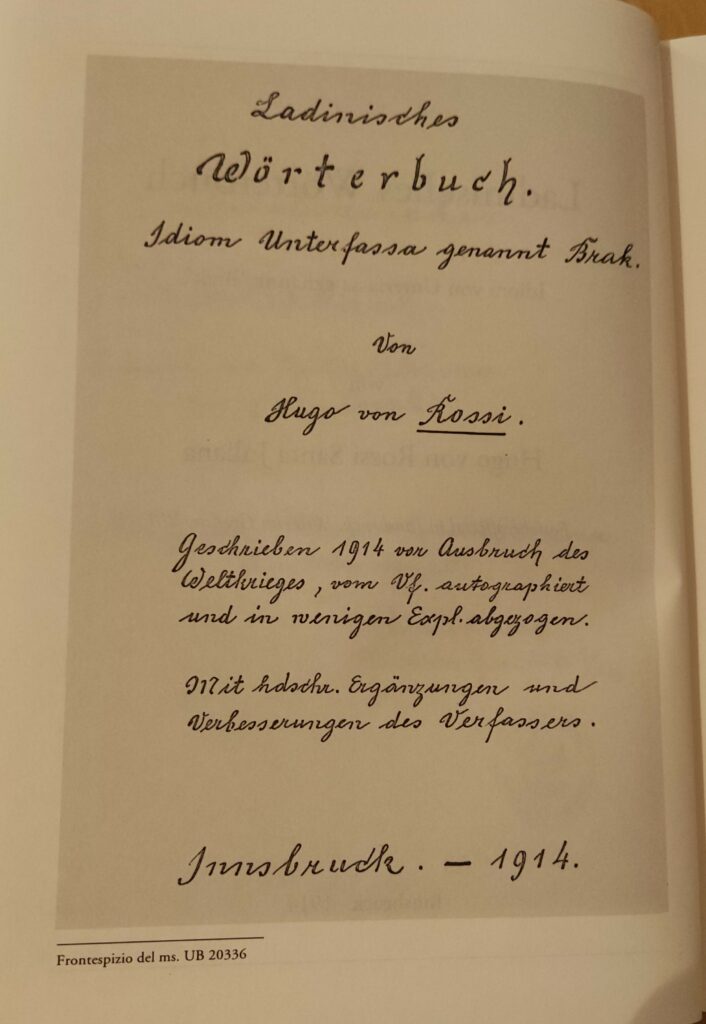 Ladinisches
Wörterbuch.
Idiom Unterfassa genannt Brak.
Von
Hugo von Rossi.
Geschrieben 1914 vor Ausbruch des
Weltkrieges, vom Vf. autographiert
und in wenigen Expl. abgezogen.
Mit hdschr. Ergänzungen und
Verbesserungen des Verfassers.
Innsbruck. — 1914.
Frontespizio del ms. UB 20336